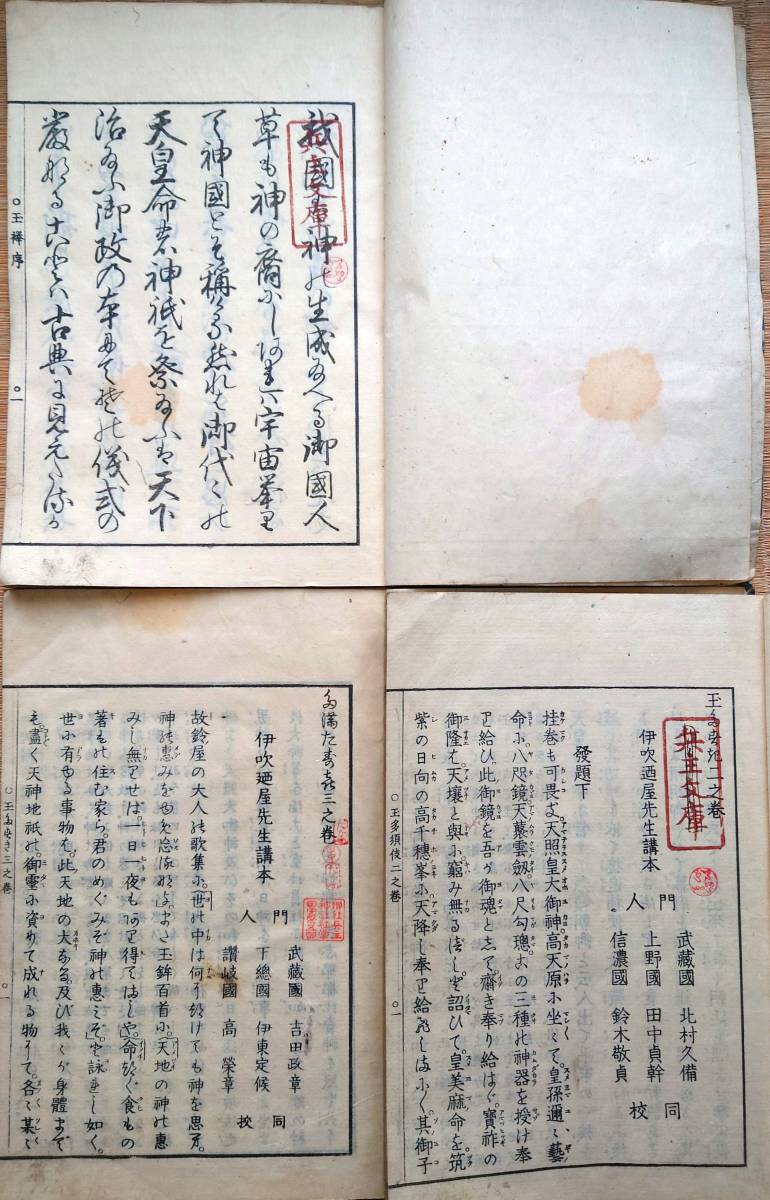 我國は神の生成給へる御國人
草も神の裔にしあれば宇宙挙り
て神國とぞ稱ける然れば御代々の
天皇命の神祇を祭給ふは天下
治給ふ御政の本にてその儀式の
嚴なることは古典に見えたるが
○玉襷序 ○一
兵主文庫
玉多須伎二之卷
伊吹廼屋先生講本
門人
武藏國 北村久備
上野國 田中貞幹
信濃國 鈴木敬貞
同校
發題下
挂卷も可畏支天照皇大御神高天原に坐々て皇孫邇々藝
命に八咫鏡天叢雲劔八尺勾璁との三種の神器を授け奉
り給ひ此御鏡を吾が御魂と志て齋き奉り給はゞ寶祚の
御隆は天壤と與に窮み無るべしと詔ひて皇美麻命を筑
紫の日向の高千穗峯に天降し奉り給へしより其御子
○玉多須伎二之卷 ○一
兵主文庫
多滿太寿喜三之卷
伊吹廼屋先生講本
門人
武藏國 吉田政章
下總國 伊東定候
讚岐國 高榮章
同校
故鈴屋の大人の歌集に世の中は何に附ても神を思ふ
神の惠みをわすれ給ふなよまた玉鉾百首に天地の神の惠
みし無りせば一日一夜もあり得てましや命繼ぐ食もの
著もの住む家ら君のめぐみぞ神の惠みぞと詠れし如く
世に有ゆる事物は此天地の大なる及び我々が身體まで
も盡く天神地祇の御靈に資りて成れる物にて各々某々
○玉多須伎三之卷 ○一